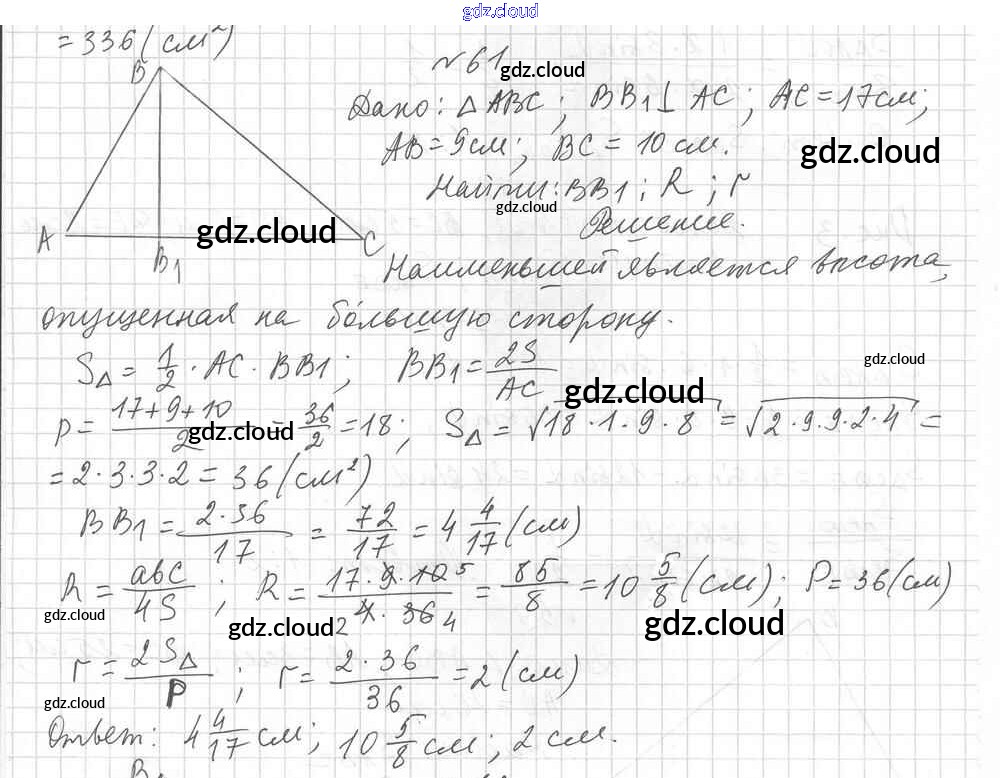 gdz.cloud
= 336 (см²)
№ 61 gdz.cloud
B
Дано: △ ABC; BB₁ ⊥ AC; AC = 17см;
AB = 9см; BC = 10 см. gdz.cloud
Найти: BB₁; R; r
gdz.cloud
Решение.
A gdz.cloud C
B₁
Наименьшей является высота,
опущенная на бо́льшую сторону.
S△ = 1/2 · AC · BB₁; BB₁ = 2S/AC gdz.cloud
gdz.cloud
p = (17+9+10)/2 = 36/2 = 18; S△ = √(18·1·9·8) = √(2·9·9·2·4) =
gdz.cloud
= 2·3·3·2 = 36 (см²)
BB₁ = 2·36/17 = 72/17 = 4 4/17 (см)
R = abc/4S; R = 17·9·10 5/4·36 2 4 = 85/8 = 10 5/8 (см); P = 36 (см)
gdz.cloud gdz.cloud gdz.cloud
r = 2S△/P; r = 2·36/36 = 2 (см)
gdz.cloud
Ответ: 4 4/17 см; 10 5/8 см; 2 см.
gdz.cloud
B